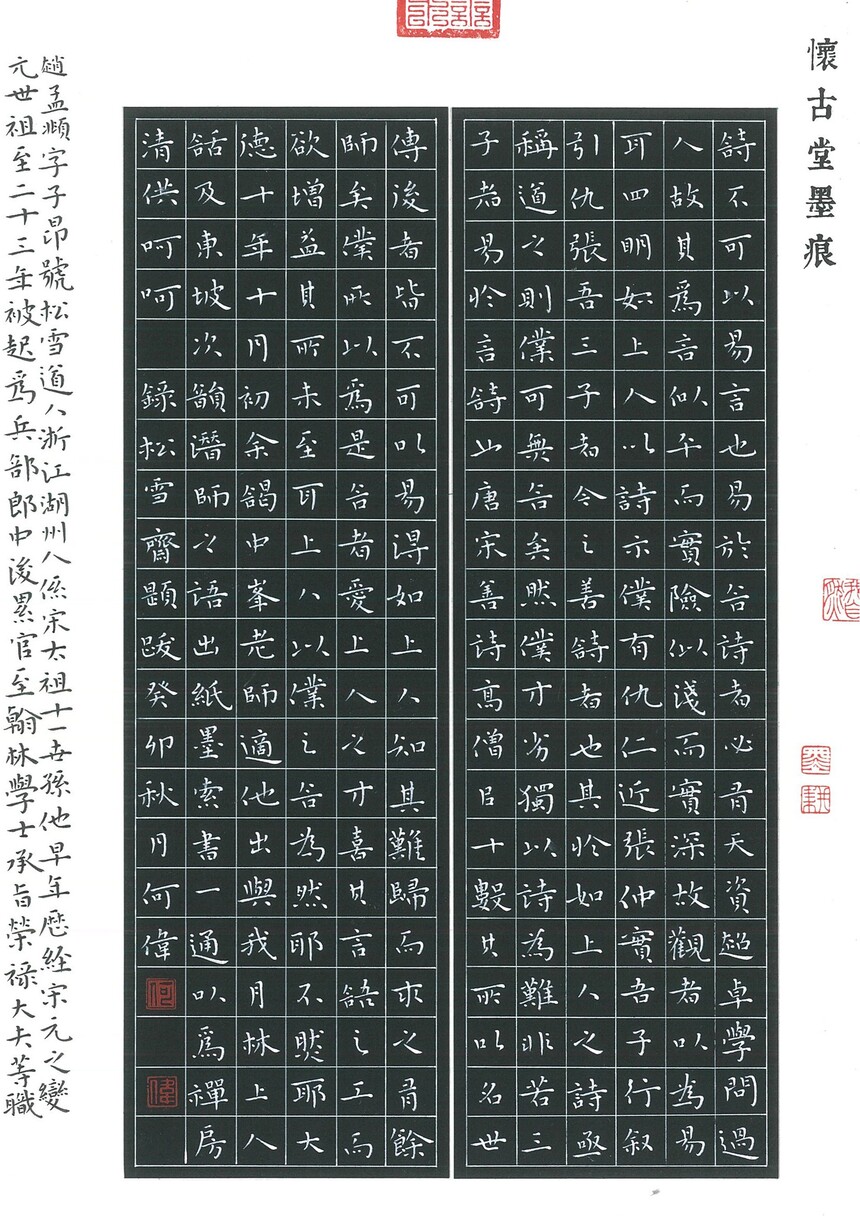 懷古堂墨痕
詩不可以易言也易於言詩者必有天資超卓學問過
人故其爲言似平而實險似淺而實深故觀者以為易
耳四明如上人以詩示僕有仇仁近張仲實吾子行叙
引仇張吾三子者今之善詩者也其於如上人之詩亟
稱道之則僕可無言矣然僕才劣獨以詩為難非若三
子者易於言詩山唐宋善詩高僧且十數其所以名世
傳後者皆不可以易得如上人知其難歸而求之有餘
師矣僕所以爲是言者愛上人之才喜其言語之工而
欲增益其所未至耳上人以僕之言為然耶不然耶大
德十年十月初余謁中峯老師適他出與我月林上人
話及東坡次韻潛師之語出紙墨索書一通以爲禪房
清供呵呵 錄松雪齋題跋癸卯秋月何偉
何
偉
趙孟頫字子昂號松雪道人浙江湖州人係宋太祖十一世孫他早年歷經宋元之變
元世祖至二十三年被起爲兵部郎中後累官至翰林學士承旨榮祿大夫等職